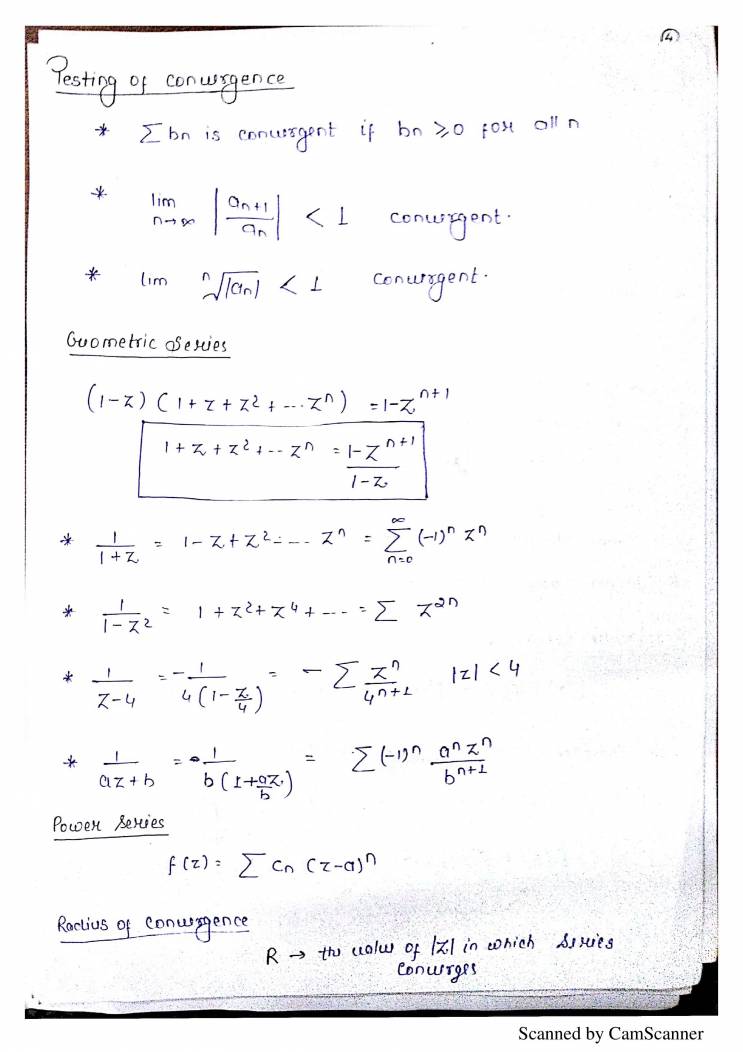 4
Testing of convergence
* Σ bn is convergent if bn ≥ 0 for all n
* lim n→∞ |an+1 / an| < 1 convergent.
* lim ⁿ√|an| < 1 convergent.
Geometric Series
(1-z) (1 + z + z² + --- zⁿ) = 1-zⁿ⁺¹
1 + z + z² + -- zⁿ = 1-zⁿ⁺¹ / 1-z
* 1/(1+z) = 1 - z + z² - --- zⁿ = Σ n=0 ∞ (-1)ⁿ zⁿ
* 1/(1-z²) = 1 + z² + z⁴ + --- = Σ z²ⁿ
* 1/(z-4) = -1/(4(1-z/4)) = - Σ zⁿ/4ⁿ⁺¹ |z| < 4
* 1/(az+b) = 1/(b(1+az/b)) = Σ (-1)ⁿ aⁿzⁿ/bⁿ⁺¹
Power Series
f(z) = Σ cn (z-a)ⁿ
Radius of convergence
R → the value of |z| in which series
converges
Scanned by CamScanner